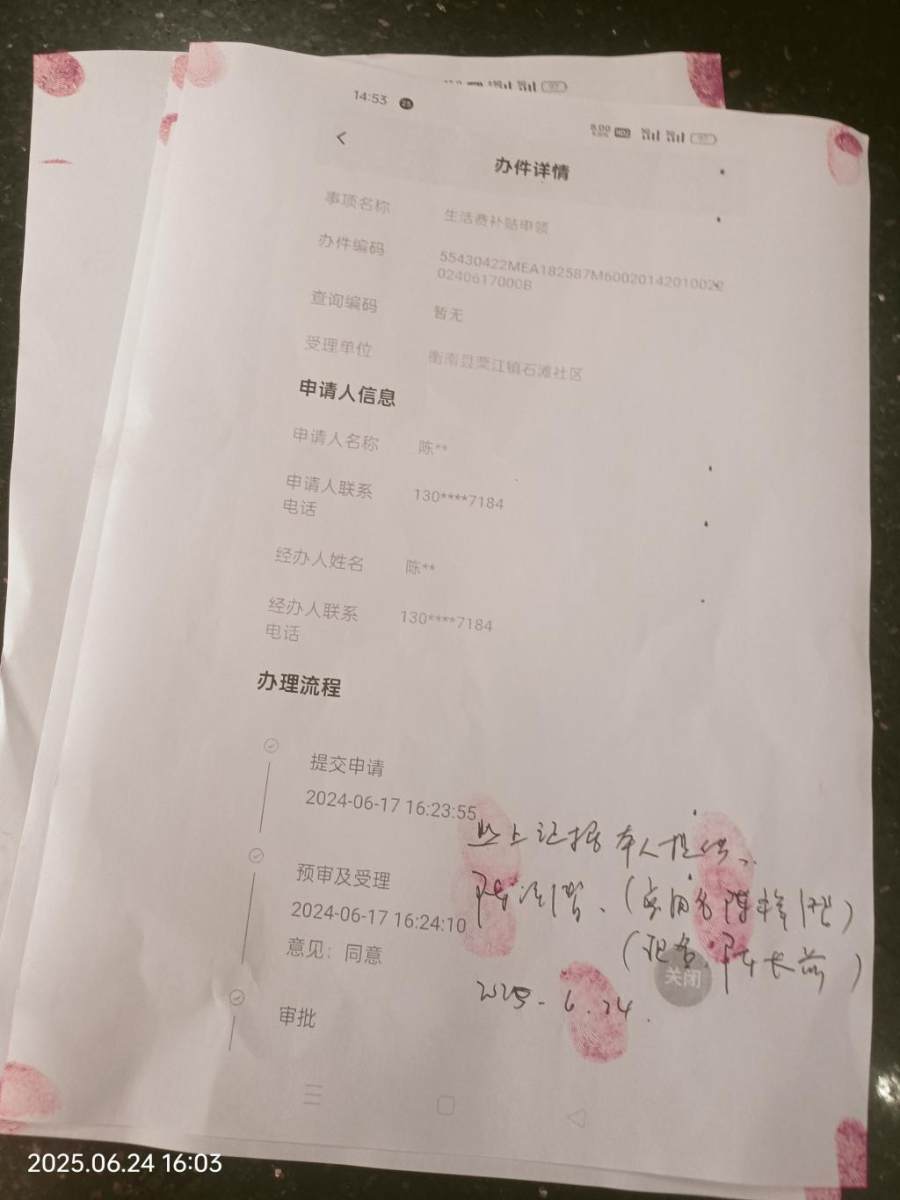 14:53 25
8.00 HD2 5G 5G
办件详情
事项名称
生活费补贴申领
办件编码
55430422MEA182587M60020142010022
0240617000B
查询编码
暂无
受理单位
衡南县栗江镇石滩社区
申请人信息
申请人名称
陈**
申请人联系
电话
130****7184
经办人姓名
陈**
经办人联系
电话
130****7184
办理流程
提交申请
2024-06-17 16:23:55
预审及受理
2024-06-17 16:24:10
意见：同意
审批
以上证据本人提供、
陈、(曾用名陈
(现名:陈长前)
2025-6.24.
关闭
2025.06.24 16:03